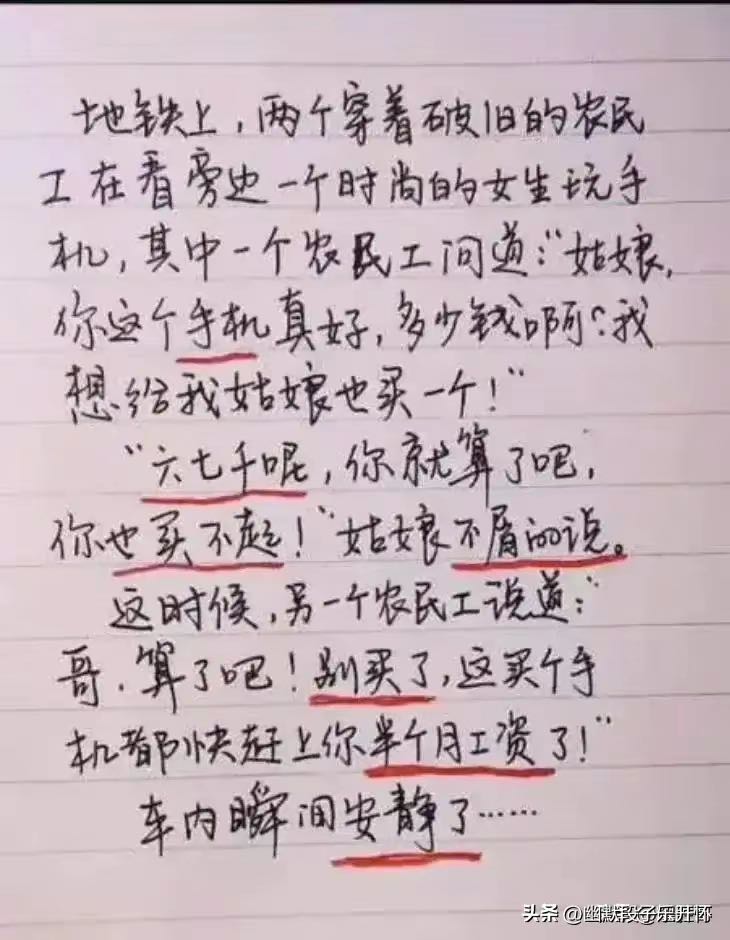 地铁上，两个穿着破旧的农民
工在看旁边一个时尚的女生玩手
机，其中一个农民工问道：“姑娘，
你这个手机真好，多少钱啊？我
想给我姑娘也买一个！”
“六七千呢，你就算了吧，
你也买不起！”姑娘不屑的说。
这时候，另一个农民工说道：“
哥，算了吧！别买了，这买个手
机都快赶上你半个月工资了！”
车内瞬间安静了……
头条 @幽默段子乐开怀